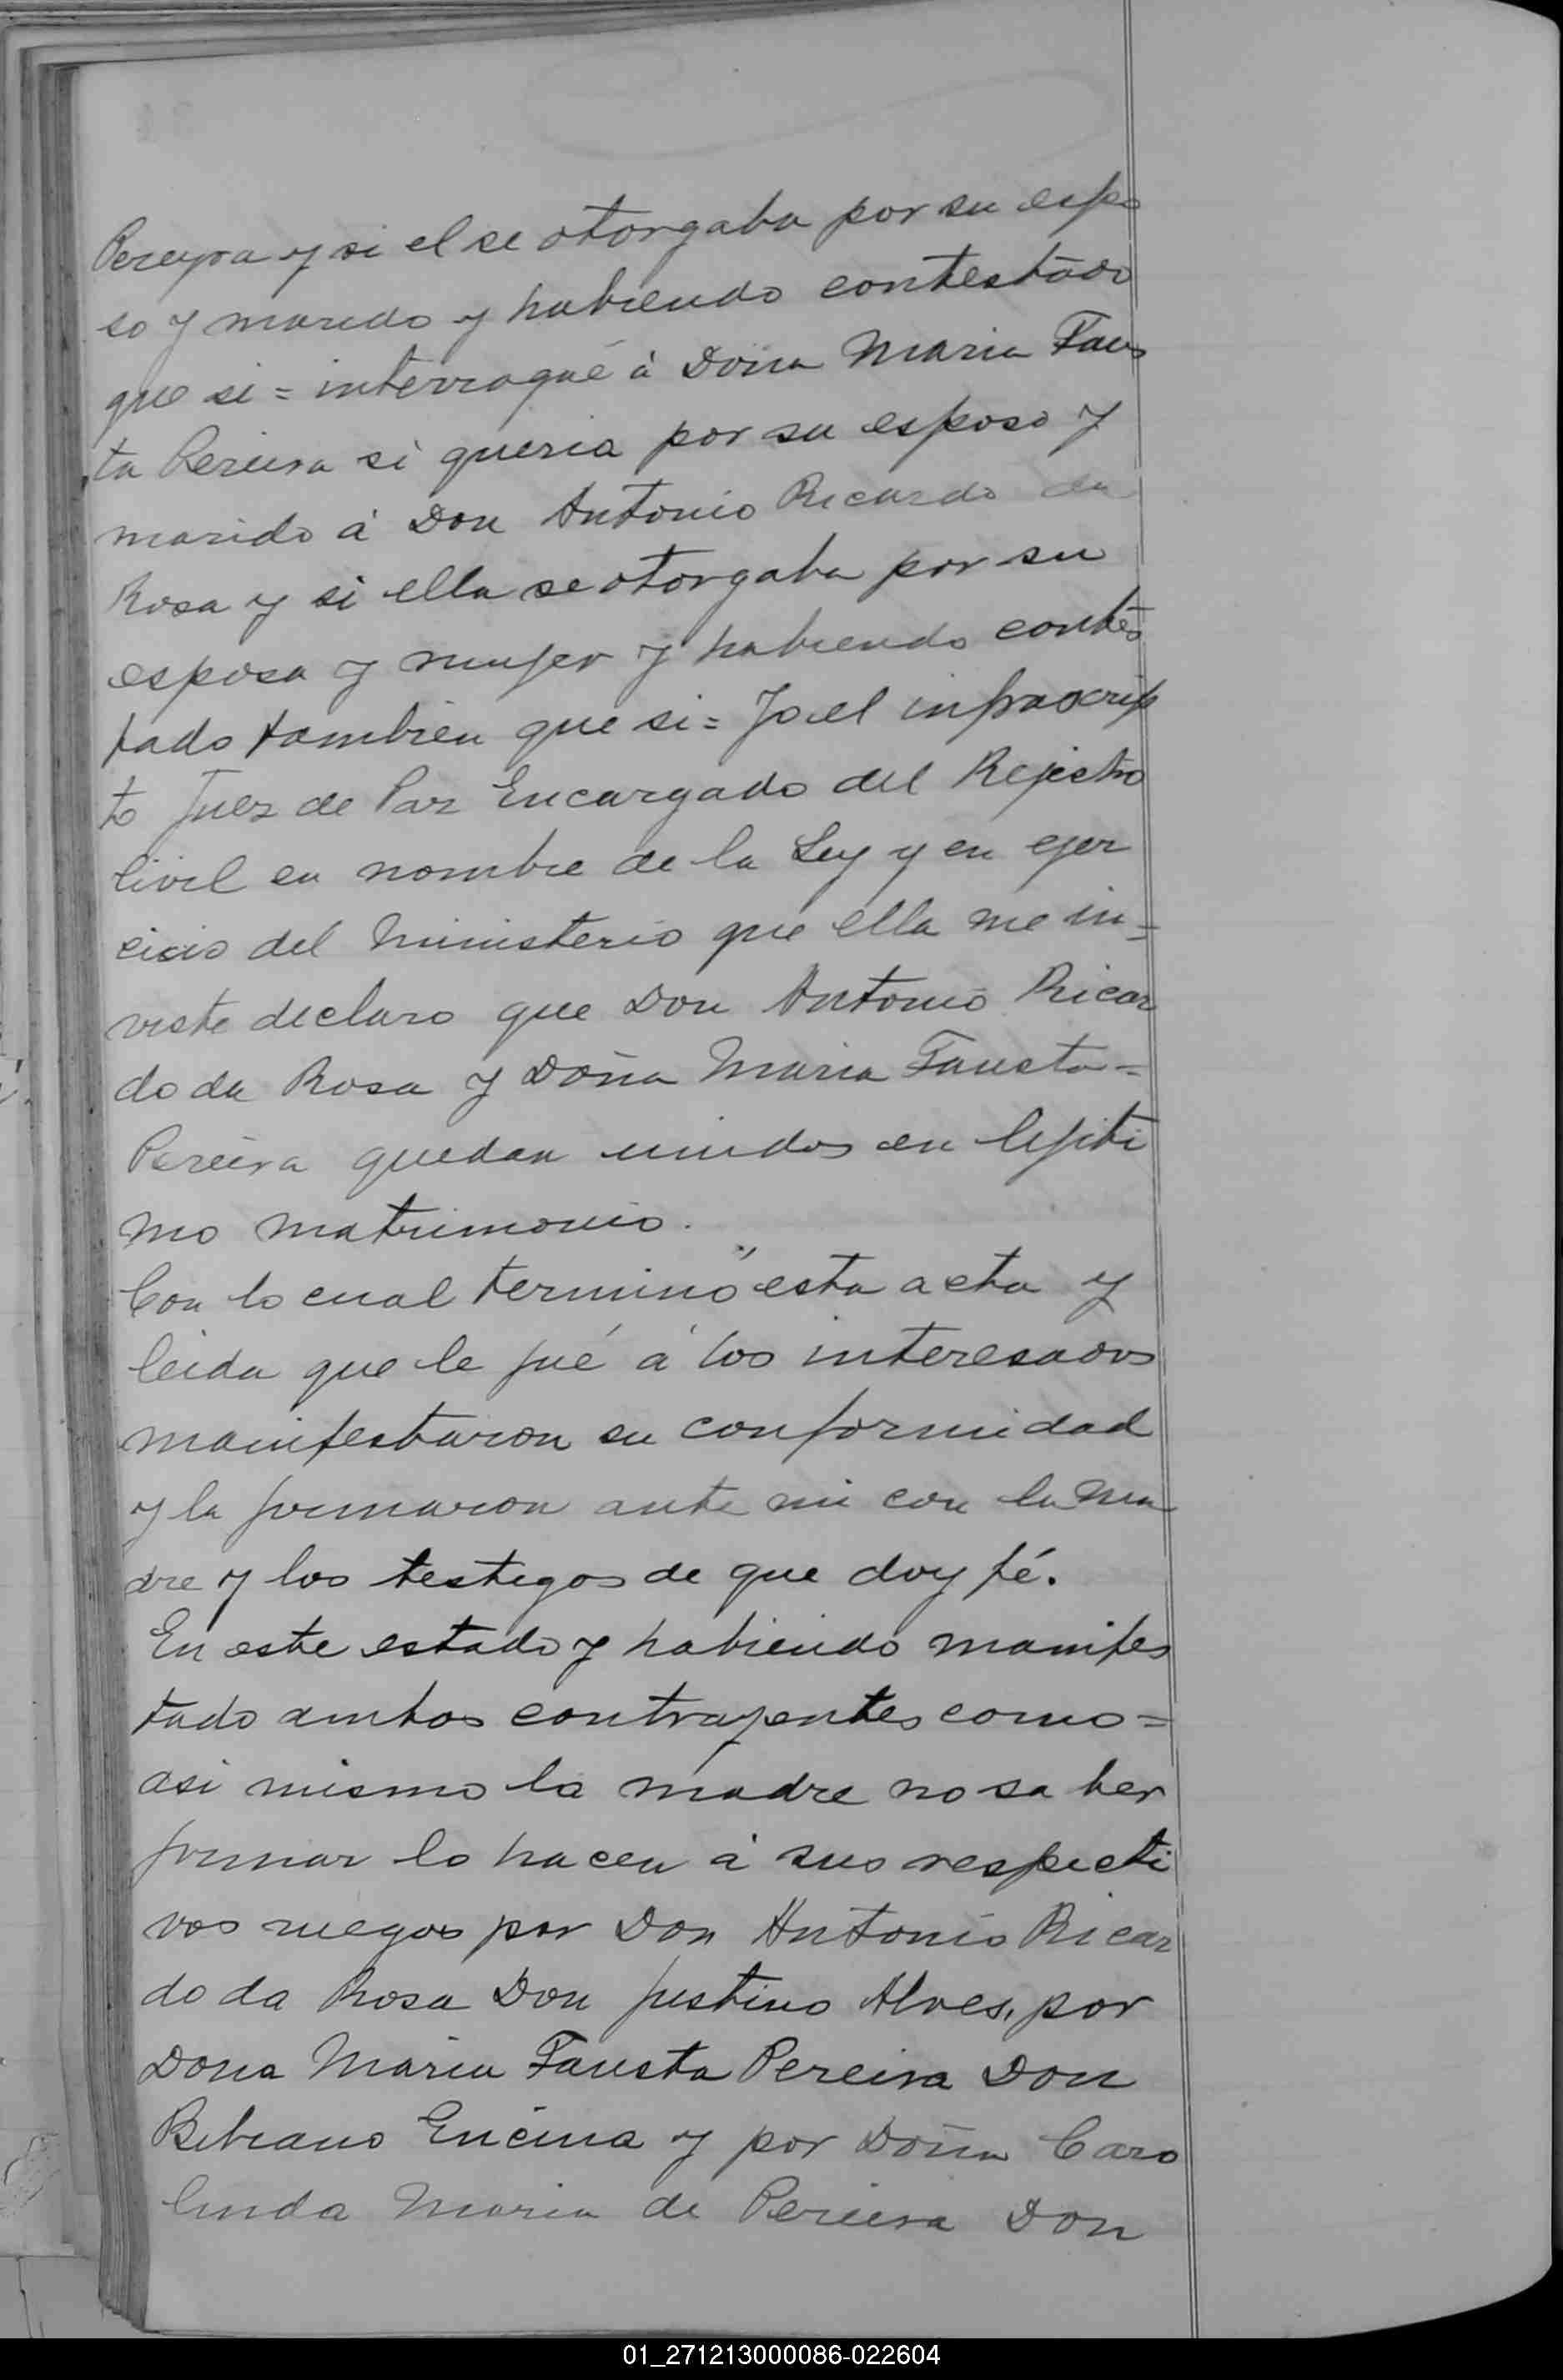 Pereyra y si el se otorgaba por su espo
so y marido y habiendo contestado
que si = interrogué á Doña Maria Faus
ta Pereira si queria por su esposo y
marido á Don Antonio Ricardo da
Rosa y si ella se otorgaba por su
esposa y mujer y habiendo contes
tado tambien que si = Yo el infrascrip
to Juez de Paz Encargado del Rejistro
Civil en nombre de la Ley y en ejer
cicio del Ministerio que ella me in=
viste declaro que Don Antonio Ricar
do da Rosa y Doña Maria Fausta =
Pereira quedan unidos en lejiti
mo matrimonio.
Con lo cual terminó esta acta y
leida que le fué á los interesados
manifestaron su conformidad
y la firmaron ante mi con la ma
dre y los testigos de que doy fé.
En este estado y habiendo manifes
tado ambos contrayentes como =
asi mismo la madre no saber
firmar lo hacen á sus respecti
vos ruegos por Don Antonio Ricar
do da Rosa Don Justino Alves, por
Dona Maria Fausta Pereira Don
Bibiano Encina y por Doña Caro
linda Maria de Pereira Don
01_271213000086-022604